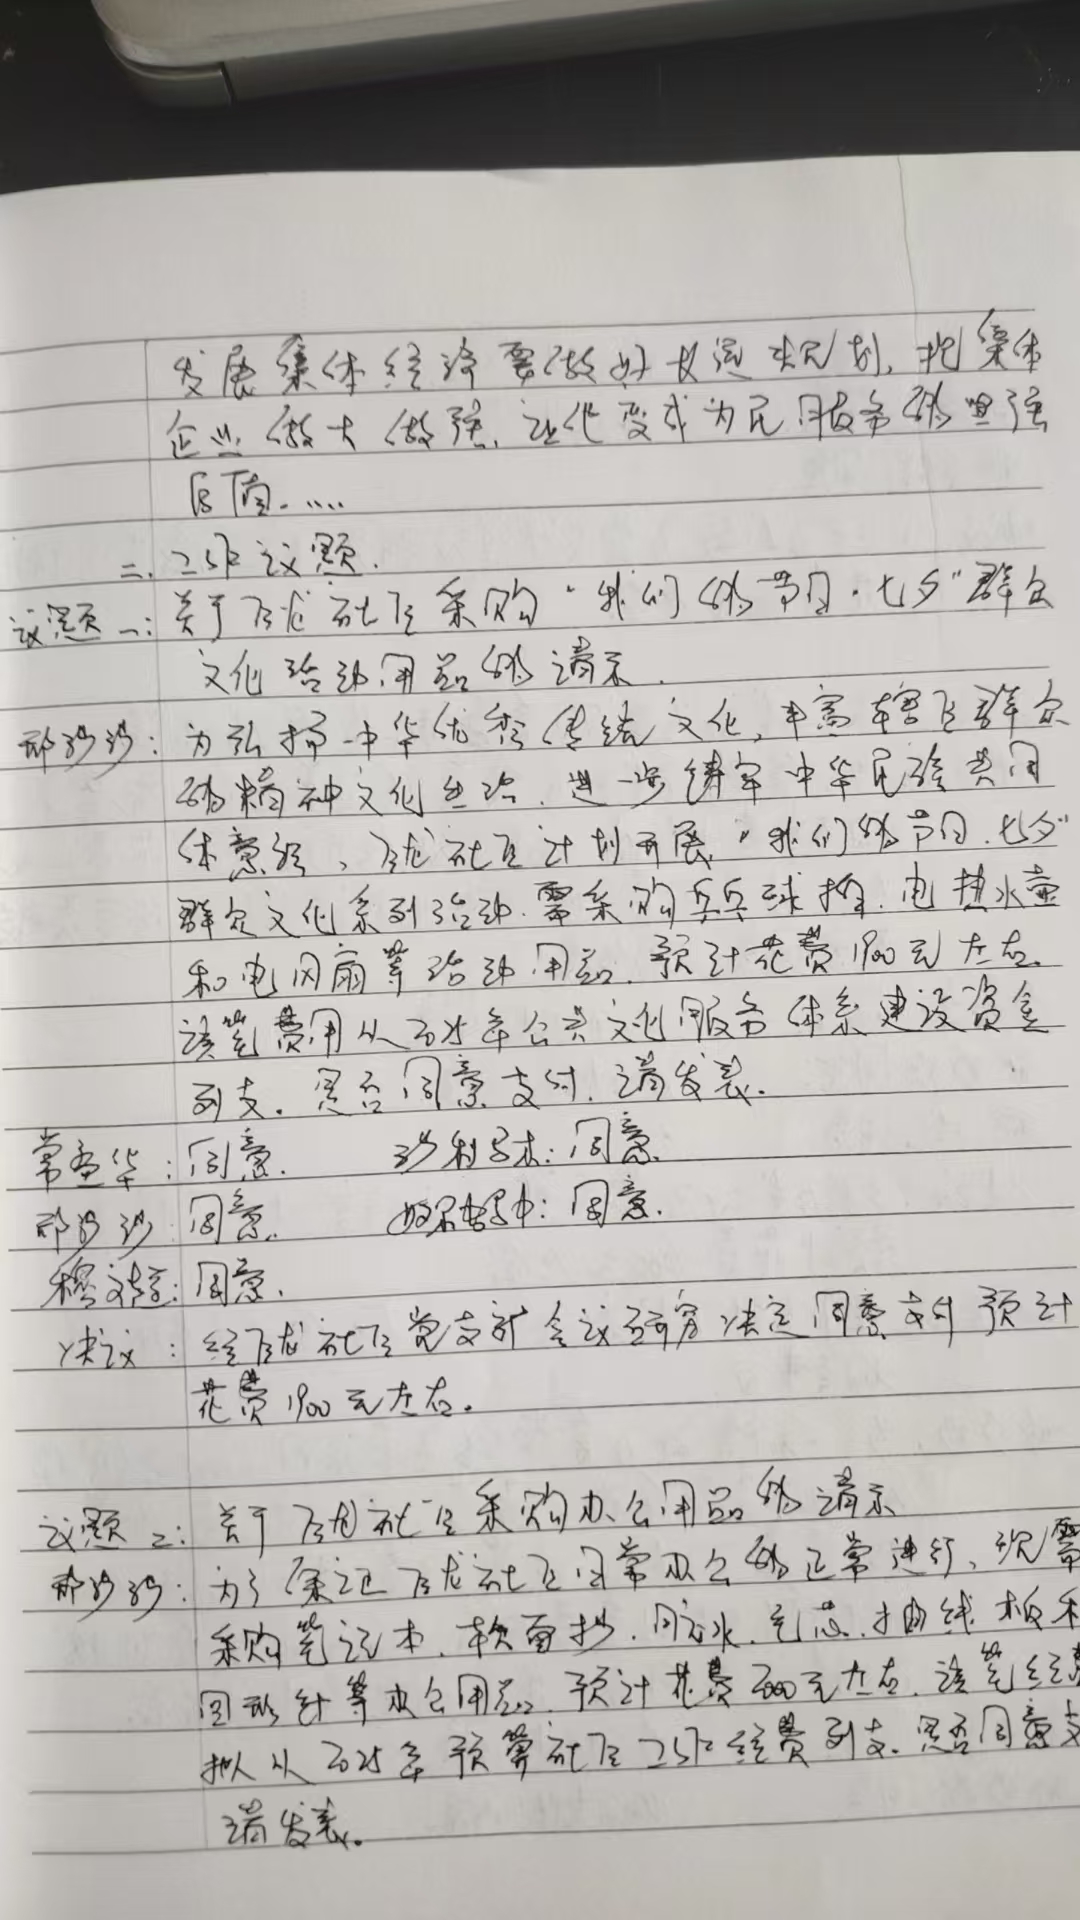 发展集体经济要做好长远规划，把集体
企业做大做强，让化变成为民服务的坚强
后盾.....
二、工作议题.
议题一：关于飞龙社区采购“我们的节日·七夕”群众
文化活动用品的请示.
邢沙沙：为弘扬中华优秀传统文化，丰富辖区群众
的精神文化生活，进一步铸牢中华民族共同
体意识，飞龙社区计划开展“我们的节日·七夕”
群众文化系列活动，需采购乒乓球拍、电热水壶
和电风扇等活动用品，预计花费1900元左右，
该笔费用从2025年公共文化服务体系建设资金
列支。是否同意支付，请发表。
华：同意. 同意.
邢沙沙 同意. 同意.
同意.
决议：经飞龙社区党支部会议研究决定同意支付预计
花费1900元左右。
议题二：关于飞龙社区采购办公用品的请示
邢沙沙：为了保证飞龙社区日常办公的正常进行，现需
采购笔记本、软面抄、胶水、笔芯、抽线板和
回形针等办公用品，预计花费元左右，该笔经费
拟从2025年预算社区工作经费列支。是否同意支
请发表。